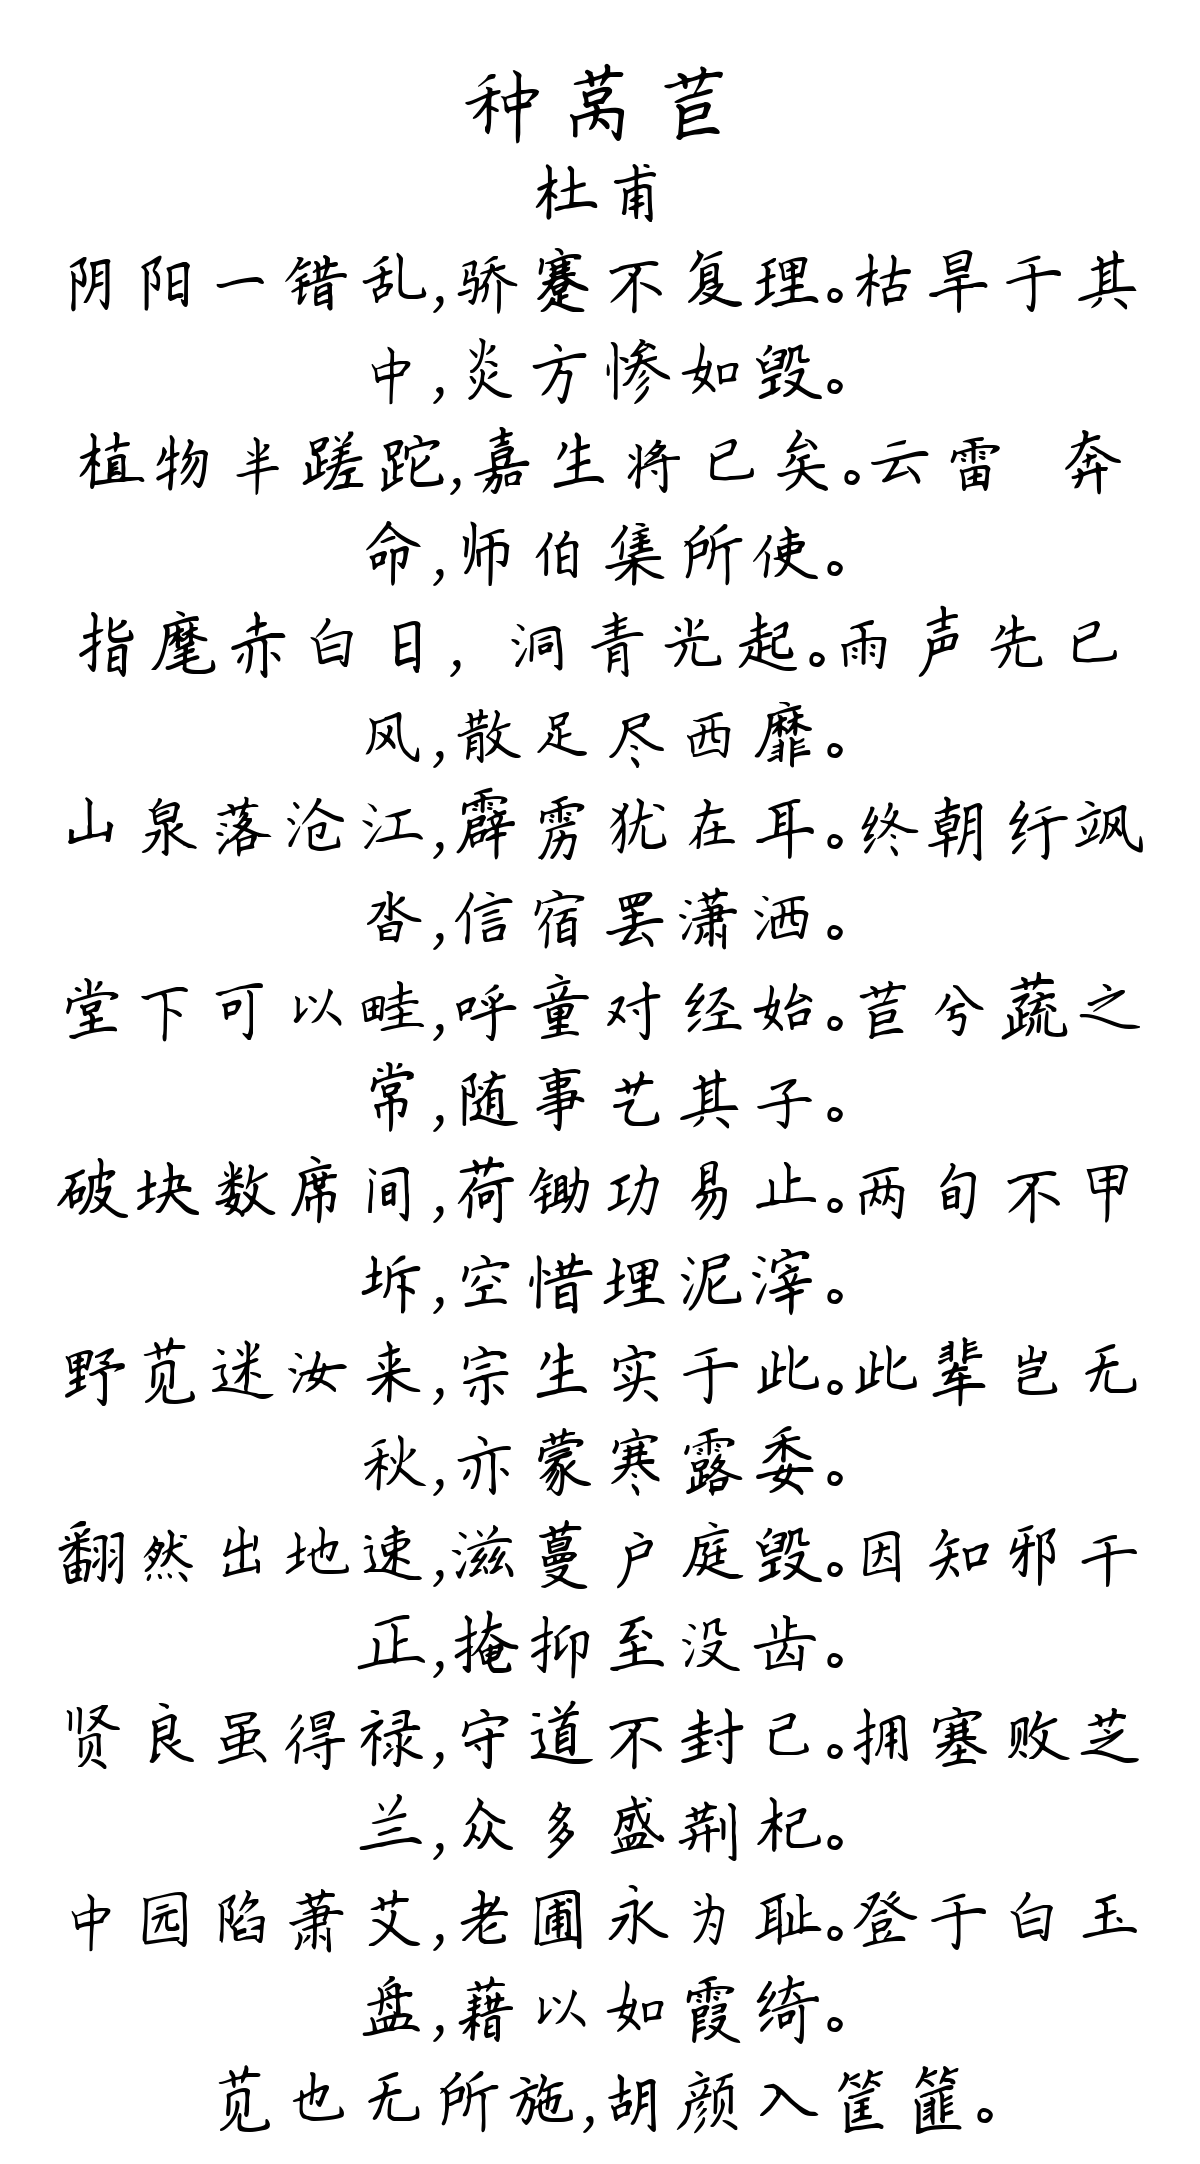 种莴苣
杜甫
阴阳一错乱,骄蹇不复理。枯旱于其
中,炎方惨如毁。
植物半蹉跎,嘉生将已矣。云雷 奔
命,师伯集所使。
指麾赤白日, 洞青光起。雨声先已
风,散足尽西靡。
山泉落沧江,霹雳犹在耳。终朝纡飒
沓,信宿罢潇洒。
堂下可以畦,呼童对经始。苣兮蔬之
常,随事艺其子。
破块数席间,荷锄功易止。两旬不甲
坼,空惜埋泥滓。
野苋迷汝来,宗生实于此。此辈岂无
秋,亦蒙寒露委。
翻然出地速,滋蔓户庭毁。因知邪干
正,掩抑至没齿。
贤良虽得禄,守道不封己。拥塞败芝
兰,众多盛荆杞。
中园陷萧艾,老圃永为耻。登于白玉
盘,藉以如霞绮。
苋也无所施,胡颜入筐篚。